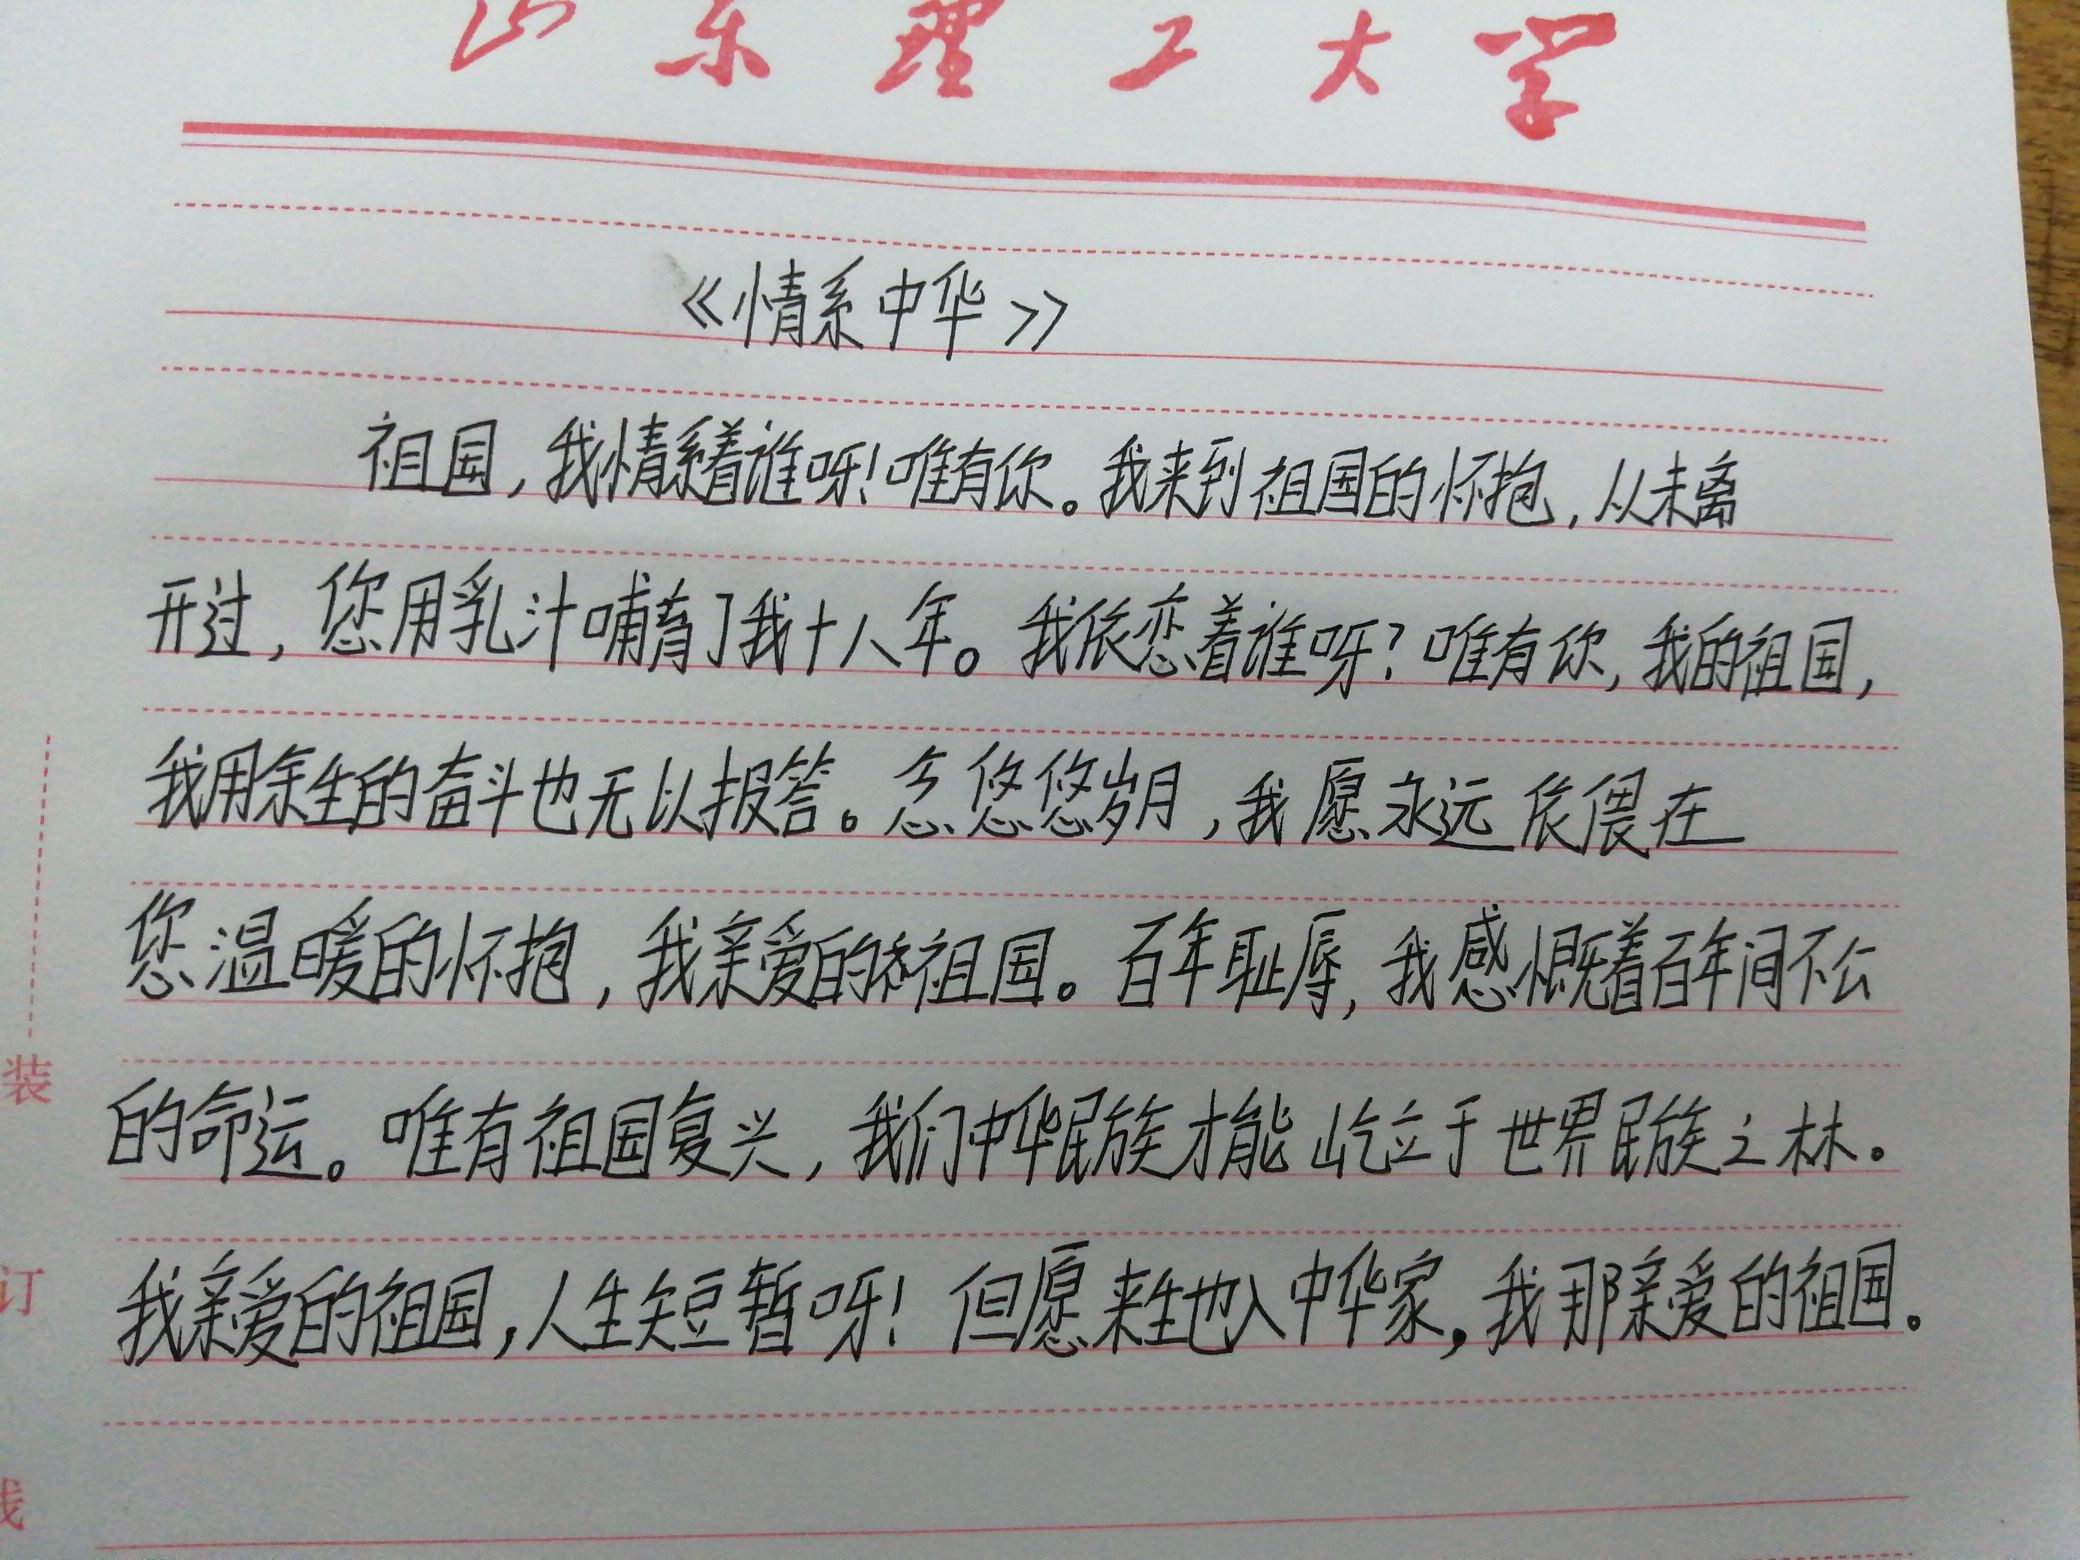 山东理工大学
《情系中华》
祖国,我情系着谁呀!唯有你。我来到祖国的怀抱,从未离
开过,您用乳汁哺育了我十八年。我依恋着谁呀?唯有你,我的祖国,
我用余生的奋斗也无以报答。悠悠岁月,我愿永远依偎在
您温暖的怀抱,我亲爱的祖国。百年耻辱,我感慨着百年间不公
的命运。唯有祖国复兴,我们中华民族才能屹立于世界民族之林。
我亲爱的祖国,人生短暂呀!但愿来生也入中华家,我那亲爱的祖国。
装
订
线